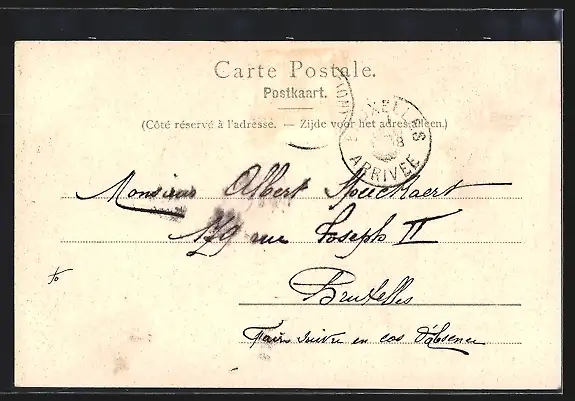 Carte Postale.
Postkaart.
(Côté réservé à l'adresse. — Zijde voor het adres alleen.)
BRUXELLES
8
ARRIVÉE
Monsieur Albert Speeckaert
179 rue Joseph II
Bruxelles
Faire suivre en cas d'absence